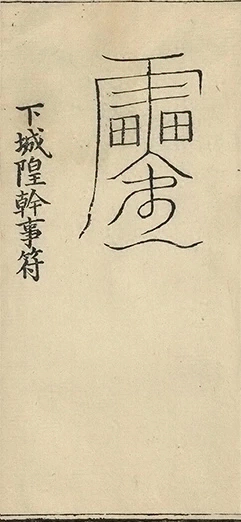 下城隍幹事符